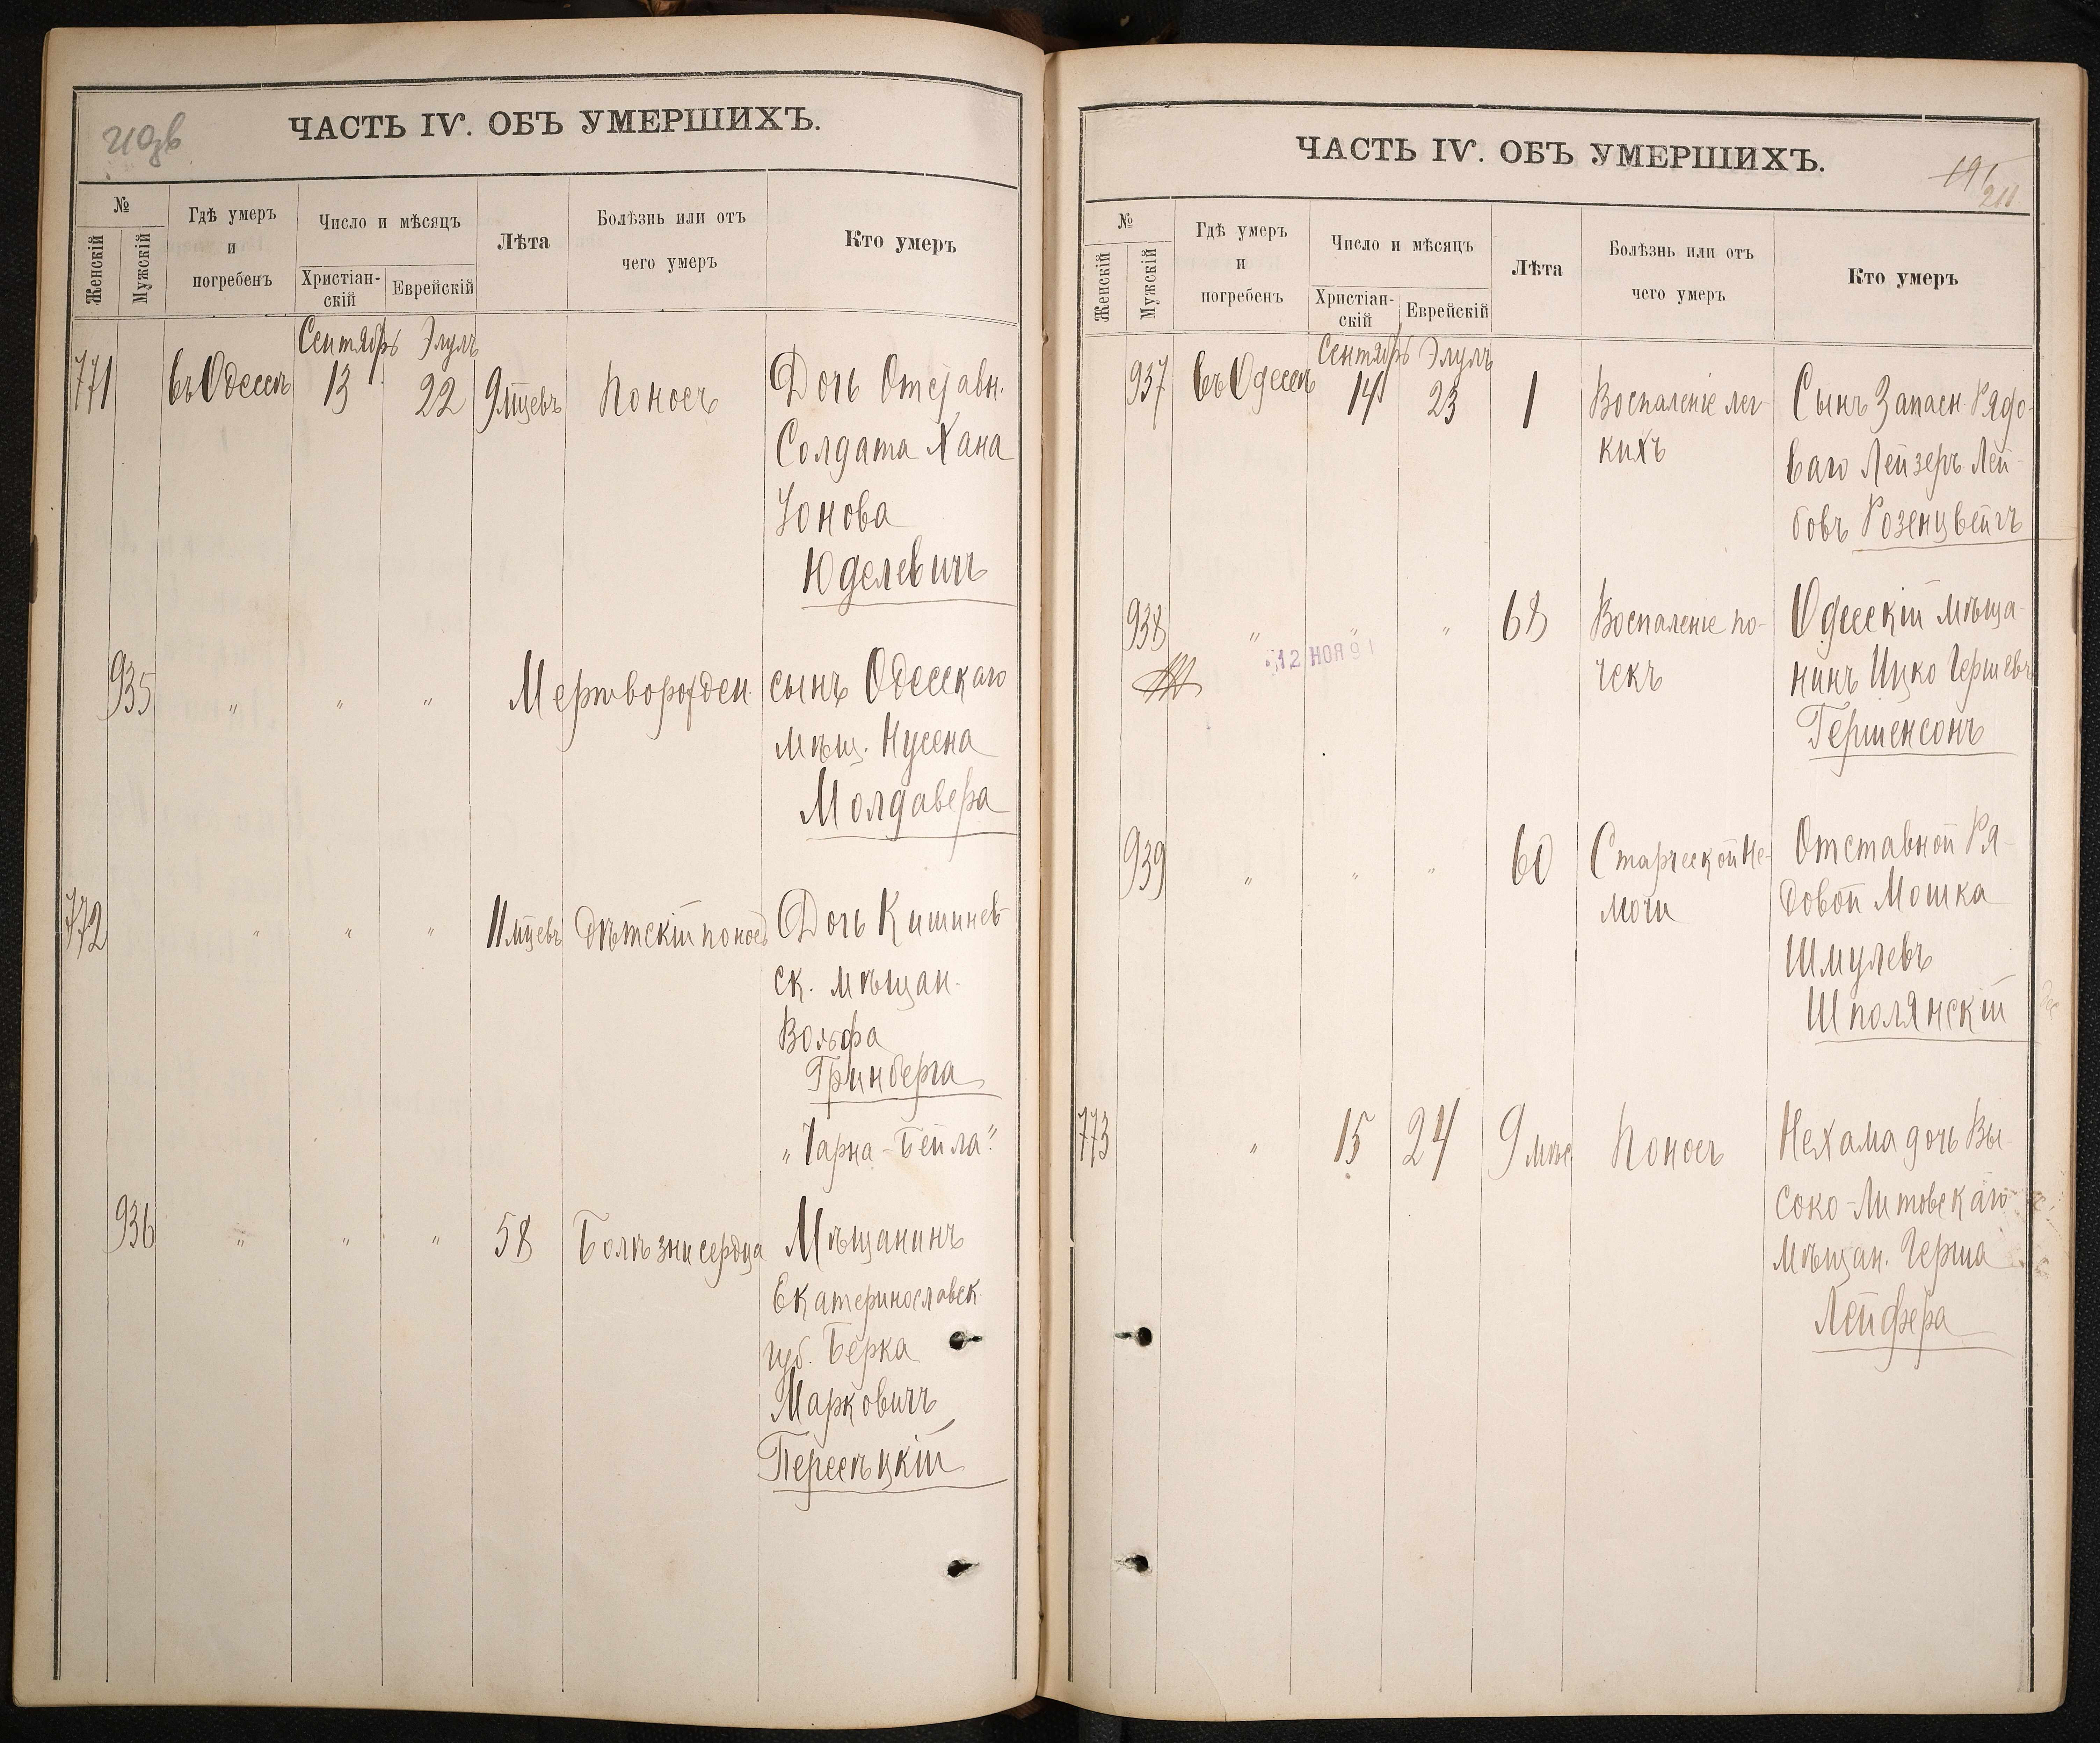 ЧАСТЬ IV. ОБЪ УМЕРШИХЪ.
№
Женскій
Мужскій
Гдѣ умеръ
и
погребенъ
Число и мѣсяцъ
Христіан-
скій
Еврейскій
Лѣта
Болѣзнь или отъ
чего умеръ
Кто умеръ
Сентябрь Элулъ
771 въ Одессѣ 13 22 9 мцевъ Поносъ Дочь Отставн.
Солдата Хана
Іонова
Юделевичъ
935 " " " Мертворожден. сынъ Одесскаго
мѣщ. Нусена
Молдавера
772 " " " 11 мцевъ Дѣтскій поносъ Дочь Кишинев-
ск. мѣщан.
Вольфа
Гринберга
„Чарна-Бейла"
936 " " " 58 Болѣзни сердца Мѣщанинъ
Екатеринославск.
губ. Берка
Марковичъ
Пересѣцкій
ЧАСТЬ IV. ОБЪ УМЕРШИХЪ.
191
211
№
Женскій
Мужскій
Гдѣ умеръ
и
погребенъ
Число и мѣсяцъ
Христіан-
скій
Еврейскій
Лѣта
Болѣзнь или отъ
чего умеръ
Кто умеръ
Сентябрь Элулъ
937 въ Одессѣ 14 23 1 Воспаленіе лег-
кихъ
Сынъ Запасн. Рядо-
ваго Лейзеръ Лей-
бовъ Розенцвейгъ
938 " " " 68 Воспаленіе по-
чекъ
Одесскій мѣща-
нинъ Ицко Гершевъ
Гершенсонъ
12 НОЯ 91
939 " " " 60 Старческой не-
мочи
Отставной Ря-
довой Мошка
Шмулевъ
Шполянскій
773 " 15 24 9 мѣс. Поносъ Нехама дочь Вы-
соко-Литовскаго
мѣщан. Герша
Лейфера